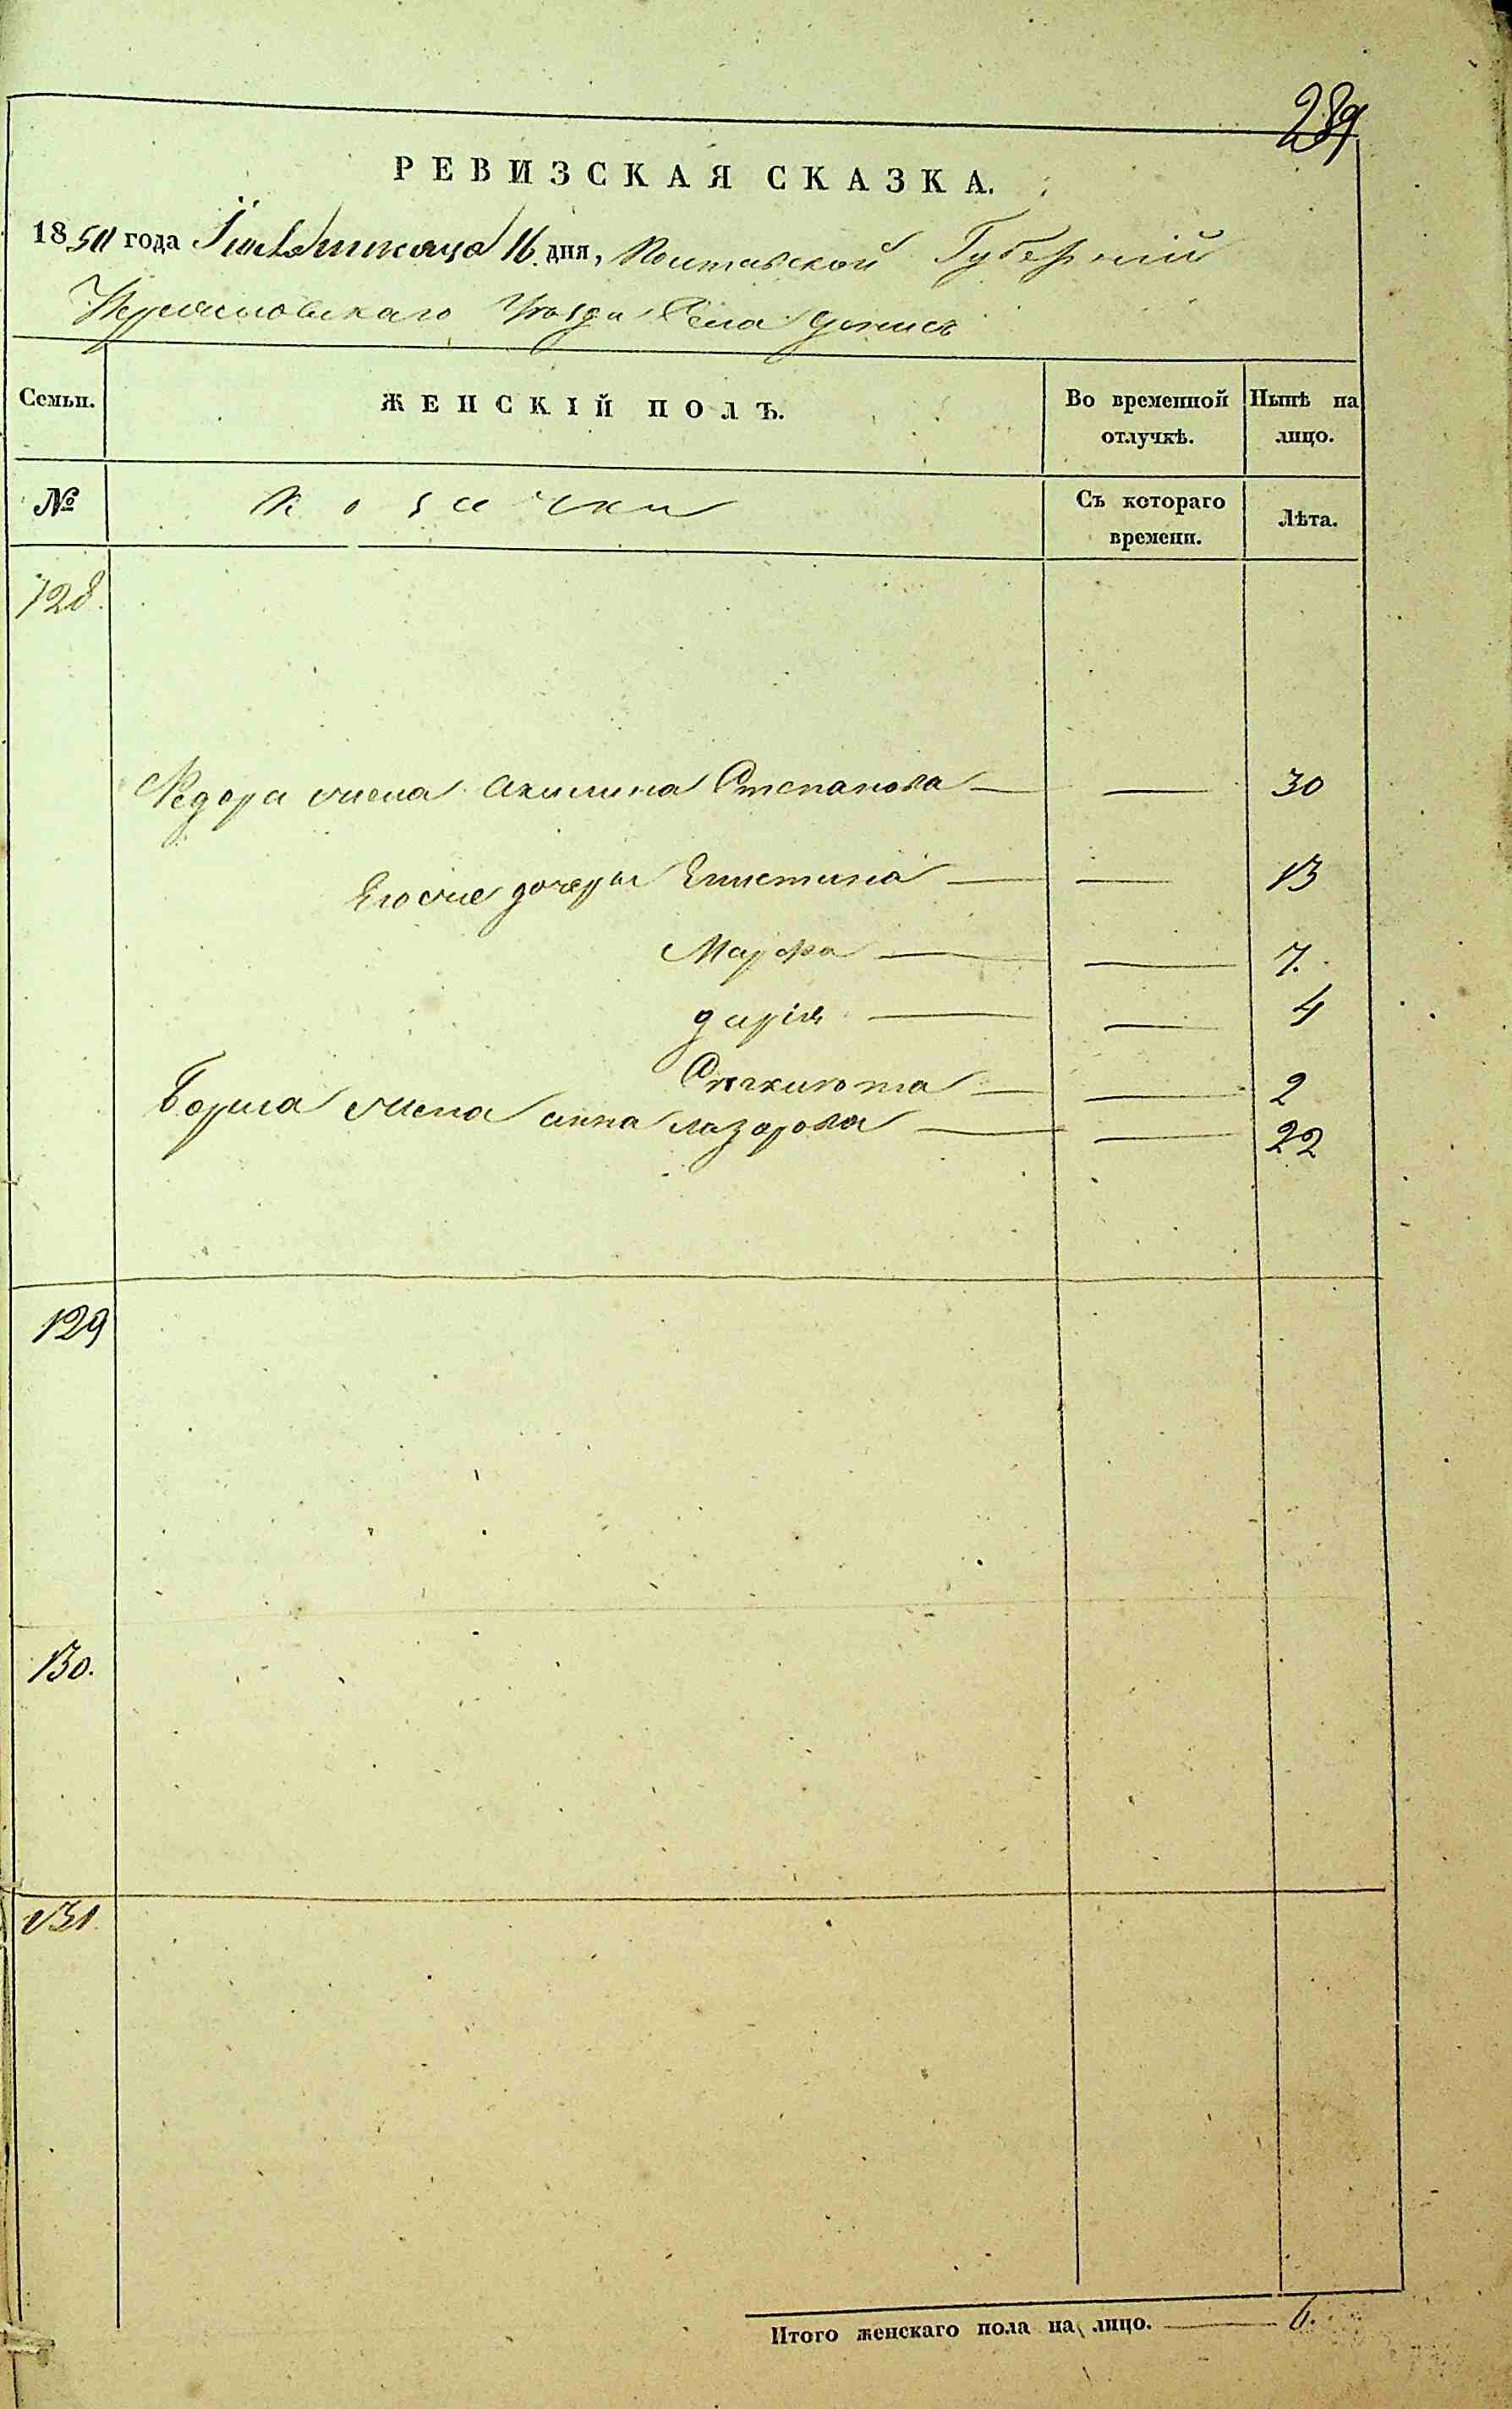 289
РЕВИЗСКАЯ СКАЗКА.
1850 года Іюля мисяца 16 дня, Полтавской Губерній
Уезда Села
Семьи. ЖЕНСКІЙ ПОЛЪ. Во временной отлучкѣ. Нынѣ на лицо.
№ козачки Съ котораго времени. Лѣта.
128.
Федора жена Акилина Степанова — — 30
Его же дочери Епистина — — 13
Марфа — — 7.
дарія — — 4
— — 2
Бориса жена анна лазарова — — 22
129
130.
131.
Итого женскаго пола на лицо. — 6.